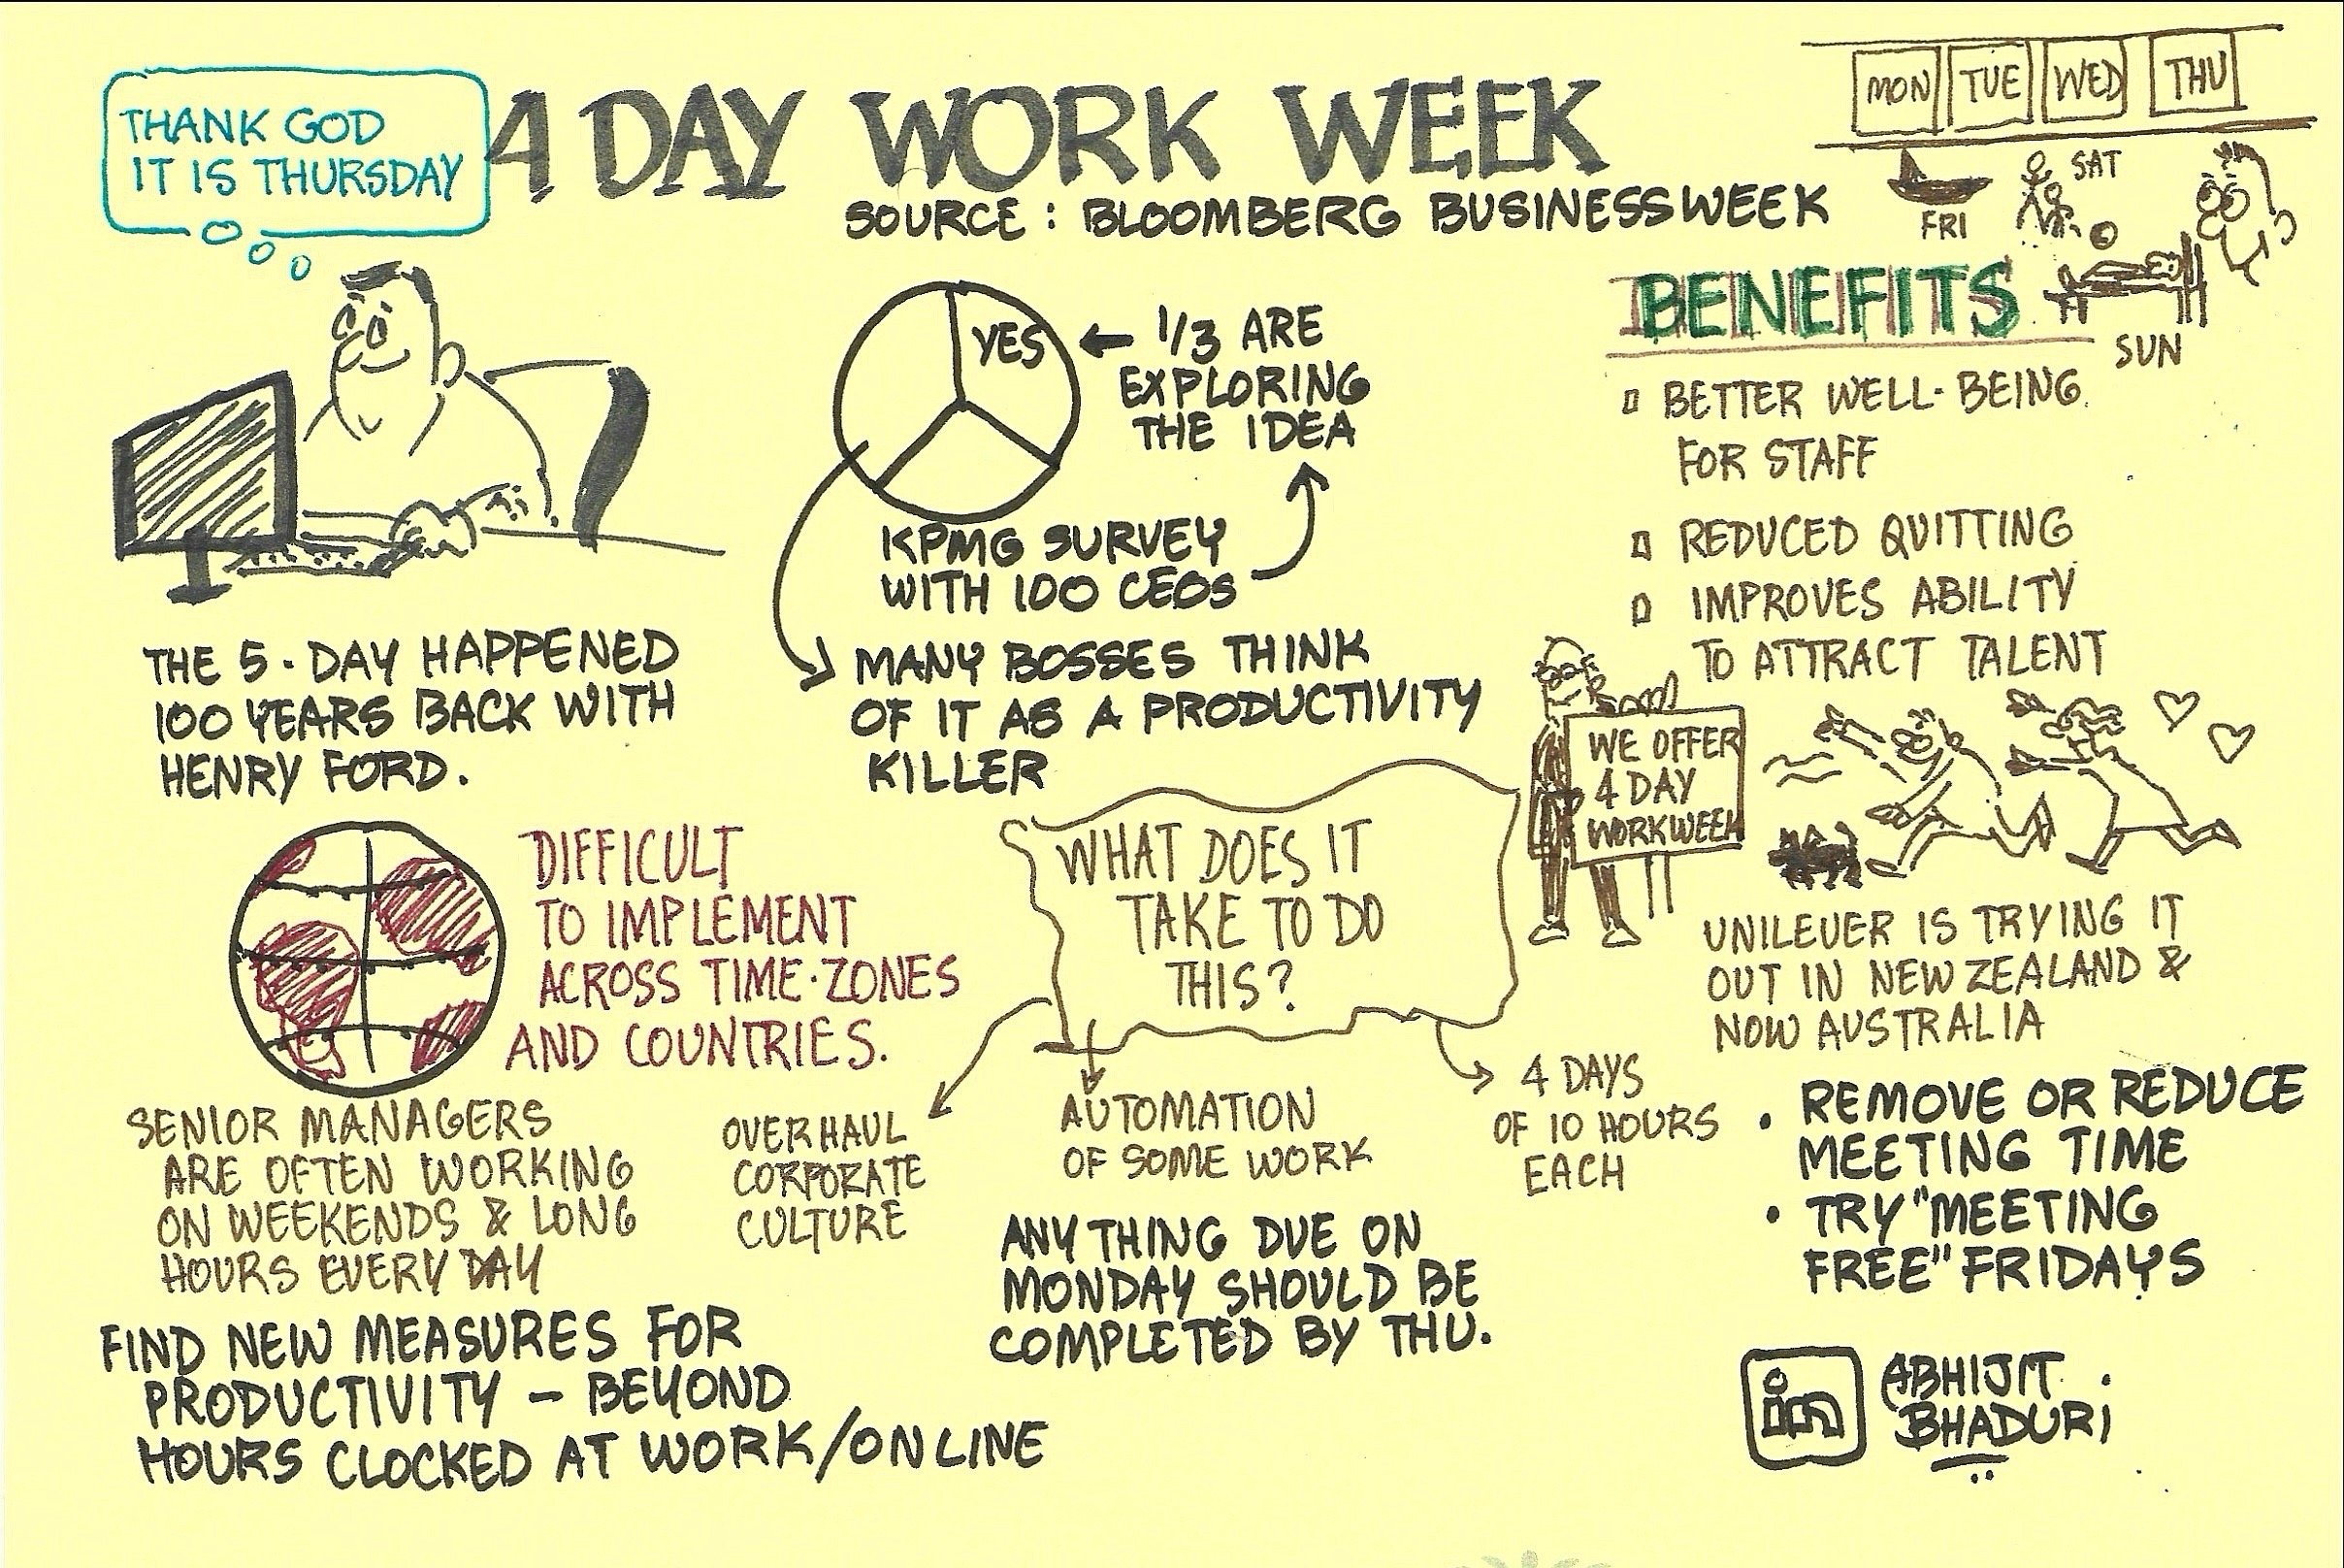 THANK GOD
IT IS THURSDAY
4 DAY WORK WEEK
SOURCE : BLOOMBERG BUSINESSWEEK
MON TUE WED THU
FRI
SAT
SUN
YES
← 1/3 ARE
EXPLORING
THE IDEA
KPMG SURVEY
WITH 100 CEOS
MANY BOSSES THINK
OF IT AS A PRODUCTIVITY
KILLER
THE 5-DAY HAPPENED
100 YEARS BACK WITH
HENRY FORD.
BENEFITS
BETTER WELL-BEING
FOR STAFF
REDUCED QUITTING
IMPROVES ABILITY
TO ATTRACT TALENT
WE OFFER
4 DAY
WORKWEEK
UNILEVER IS TRYING IT
OUT IN NEW ZEALAND &
NOW AUSTRALIA
DIFFICULT
TO IMPLEMENT
ACROSS TIME-ZONES
AND COUNTRIES.
WHAT DOES IT
TAKE TO DO
THIS?
OVERHAUL
CORPORATE
CULTURE
AUTOMATION
OF SOME WORK
4 DAYS
OF 10 HOURS
EACH
• REMOVE OR REDUCE
MEETING TIME
• TRY "MEETING
FREE" FRIDAYS
SENIOR MANAGERS
ARE OFTEN WORKING
ON WEEKENDS & LONG
HOURS EVERY DAY
ANYTHING DUE ON
MONDAY SHOULD BE
COMPLETED BY THU.
FIND NEW MEASURES FOR
PRODUCTIVITY – BEYOND
HOURS CLOCKED AT WORK/ONLINE
in
ABHIJIT
BHADURI